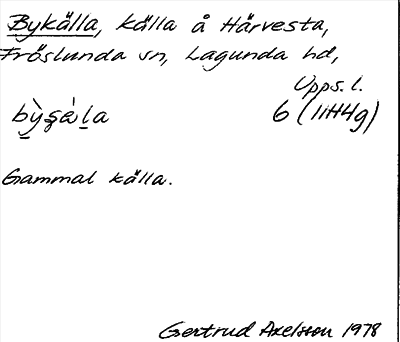 Bykälla, källa å Härvesta,
Fröslunda sn, Lagunda hd,
Upps. l.
6 (11H4g)
Gammal källa.
Gertrud Axelsson 1978